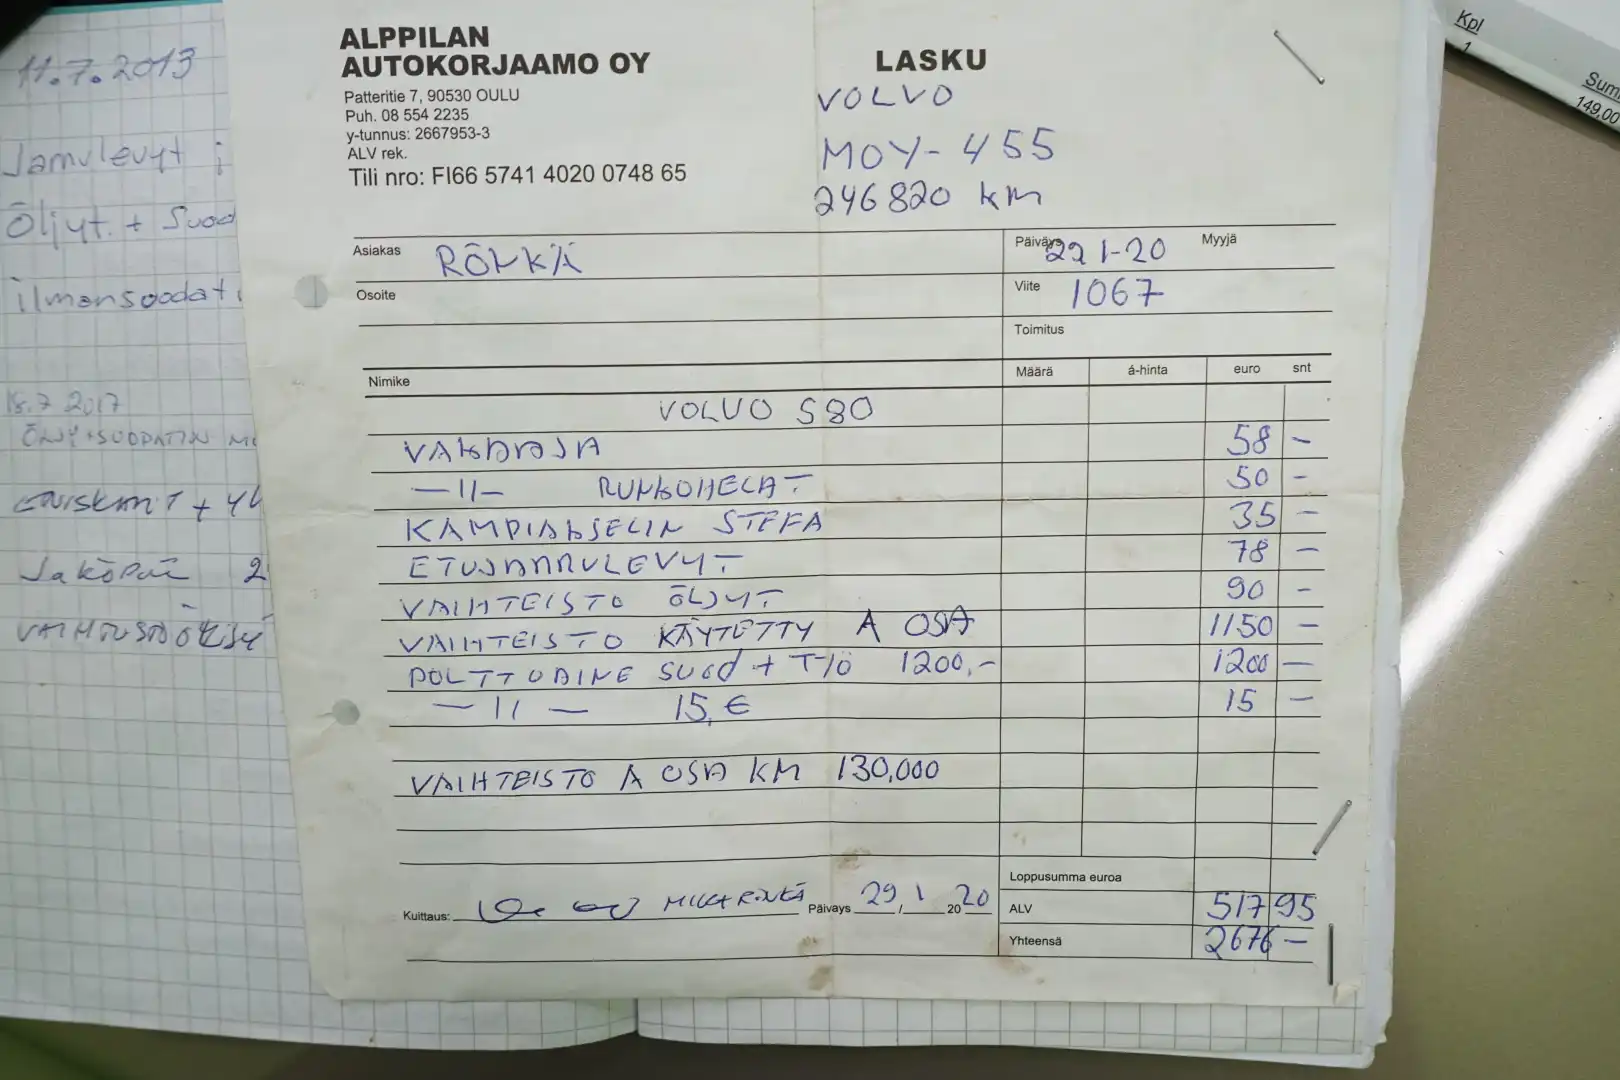 11.7.2013
Jarrulevyt
Öljyt. + Suod
ilmansuodati
18.7 2017
ÖLJY+SUODATIN
+
Jakopää 2
VAIHTEISTOÖLJY
ALPPILAN
AUTOKORJAAMO OY
Patteritie 7, 90530 OULU
Puh. 08 554 2235
y-tunnus: 2667953-3
ALV rek.
Tili nro: FI66 5741 4020 0748 65
LASKU
VOLVO
MOY-455
246820 KM
Asiakas
Päiväys 1-20 Myyjä
Osoite
Viite 1067
Toimitus
Nimike Määrä á-hinta euro snt
VOLVO S80
58 –
–11– RUNKOHELAT 50 –
KAMPIAKSELIN STEFA 35 –
ETUJARRULEVYT 78 –
VAIHTEISTO ÖLJYT 90 –
VAIHTEISTO KÄYTETTY A OSA 1150 –
POLTTOAINE SUOD + TYÖ 1200,- 1200 –
–11– 15,€ 15 –
VAIHTEISTO A OSA KM 130,000
Loppusumma euroa
Kuittaus: Päiväys 29 / 1 20 20
ALV 517 95
Yhteensä 2676 –
Kpl
1
Sum
149,00